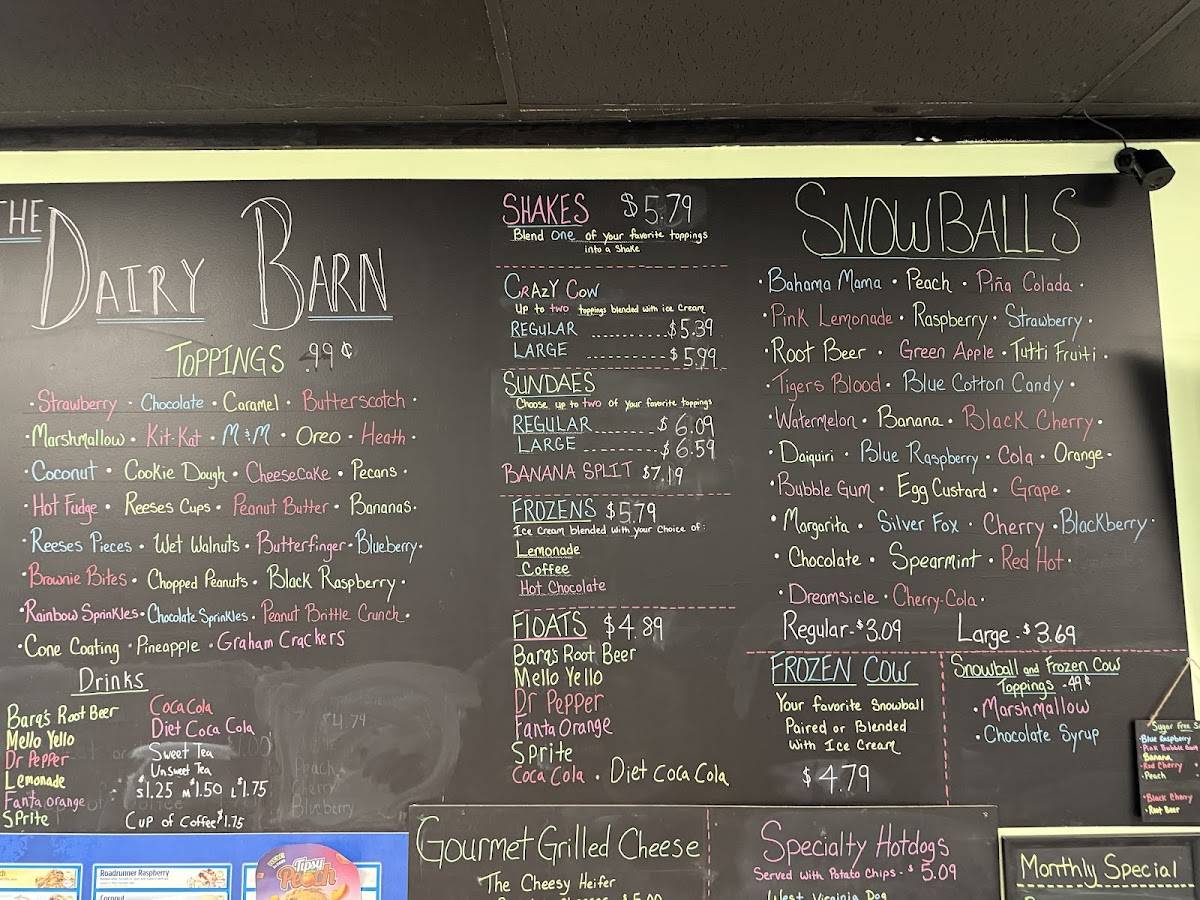 THE
DAIRY BARN
TOPPINGS .99¢
· Strawberry · Chocolate · Caramel · Butterscotch ·
· Marshmallow · Kit-Kat · M&M · Oreo · Heath ·
· Coconut · Cookie Dough · Cheesecake · Pecans ·
· Hot Fudge · Reeses Cups · Peanut Butter · Bananas ·
· Reeses Pieces · Wet Walnuts · Butterfinger · Blueberry ·
· Brownie Bites · Chopped Peanuts · Black Raspberry ·
· Rainbow Sprinkles · Chocolate Sprinkles · Peanut Brittle Crunch ·
· Cone Coating · Pineapple · Graham Crackers
Drinks
Barq's Root Beer
Mello Yello
Dr Pepper
Lemonade
Fanta orange
Sprite
Coca Cola
Diet Coca Cola
Sweet Tea
Unsweet Tea
S $1.25 M $1.50 L $1.75
Cup of Coffee $1.75
SHAKES $5.79
Blend one of your favorite toppings
into a Shake
CRAZY COW
Up to two toppings blended with ice Cream
REGULAR ........... $5.39
LARGE ........... $5.99
SUNDAES
Choose up to two of your favorite toppings
REGULAR ......... $6.09
LARGE ........... $6.59
BANANA SPLIT $7.19
FROZENS $5.79
Ice Cream blended with your Choice of:
Lemonade
Coffee
Hot Chocolate
FlOATS $4.89
Barq's Root Beer
Mello Yello
Dr Pepper
Fanta Orange
Sprite
Coca Cola · Diet Coca Cola
SNOWBALLS
· Bahama Mama · Peach · Piña Colada ·
· Pink Lemonade · Raspberry · Strawberry ·
· Root Beer · Green Apple · Tutti Fruiti ·
· Tigers Blood · Blue Cotton Candy ·
· Watermelon · Banana · Black Cherry ·
· Daiquiri · Blue Raspberry · Cola · Orange ·
· Bubble Gum · Egg Custard · Grape ·
· Margarita · Silver Fox · Cherry · Blackberry ·
· Chocolate · Spearmint · Red Hot ·
· Dreamsicle · Cherry-Cola ·
Regular - $3.09 Large - $3.69
FROZEN COW
Your favorite Snowball
Paired or Blended
With Ice Cream
$4.79
Snowball and Frozen Cow
Toppings .49¢
· Marshmallow
· Chocolate Syrup
Sugar Free
· Blue Raspberry
· Pink Bubble Gum
Banana
· Red Cherry
· Peach
· Black Cherry
· Root Beer
Gourmet Grilled Cheese
The Cheesy Heifer
Specialty Hotdogs
Served with Potato Chips - $5.09
West Virginia Dog
Monthly Special
Roadrunner Raspberry
Coconut
Tipsy
Peach